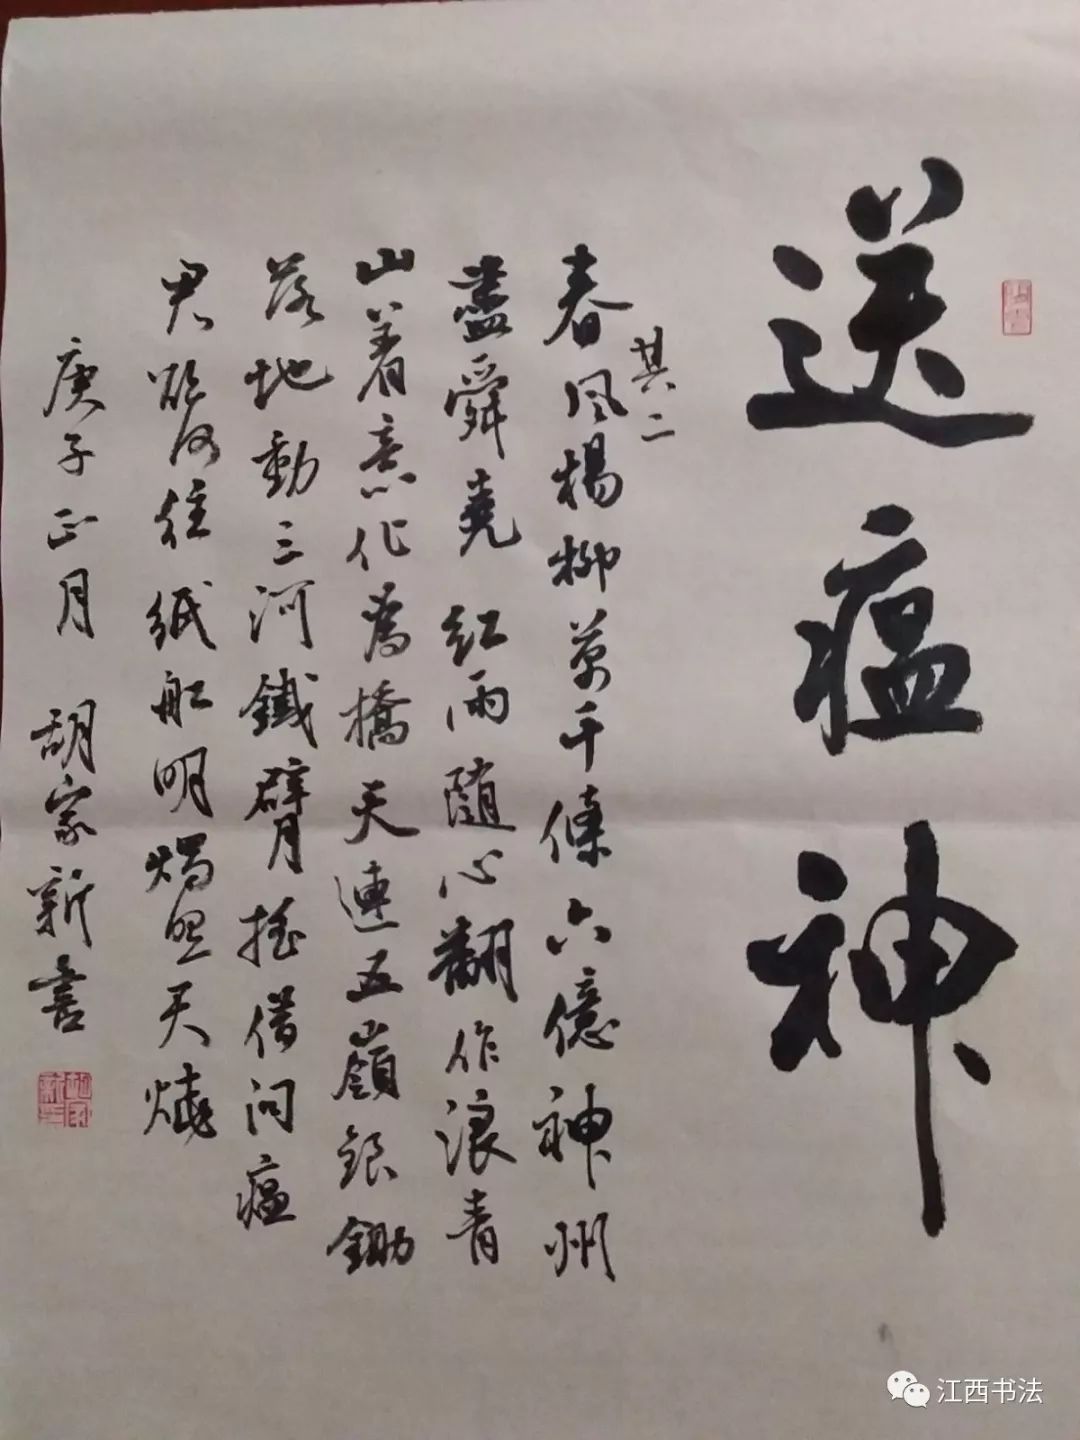 送瘟神
其二
春风楊柳萬千條六億神州
盡舜堯 紅雨随心翻作浪青
山着意化為橋天連五嶺銀鋤
落地動三河鐵臂搖借问瘟
君欲何往紙船明燭照天燒
庚子正月 胡家新書
江西书法